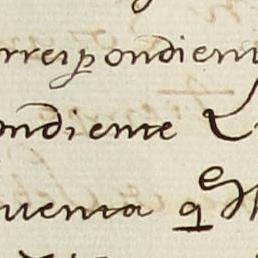 rrespondient
ondiente
uenta q